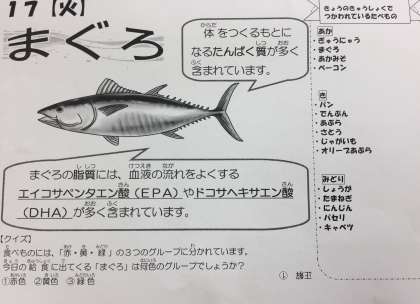 17【火】
まぐろ
体をつくるもとに
なるたんぱく質が多く
含まれています。
まぐろの脂質には、血液の流れをよくする
エイコサペンタエン酸（EPA）やドコサヘキサエン酸
（DHA）が多く含まれています。
【クイズ】
食べものには、「赤・黄・緑」の3つのグループに分かれています。
今日の給食に出てくる「まぐろ」は何色のグループでしょうか？
①赤色 ②黄色 ③緑色
きょうのきゅうしょくで
つかわれているたべもの
あか
・ぎゅうにゅう
・まぐろ
・あかみそ
・ベーコン
き
・パン
・でんぷん
・あぶら
・さとう
・じゃがいも
・オリーブあぶら
みどり
・しょうが
・たまねぎ
・にんじん
・パセリ
・キャベツ
正解 ①